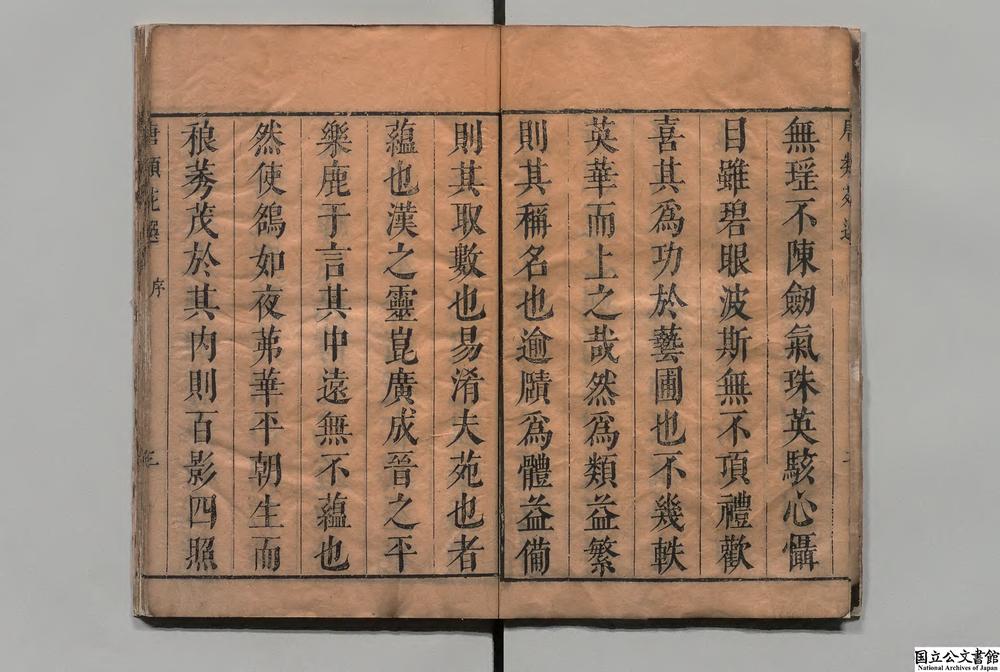 無瑶不陳劒氣珠英駭心懾
目雖碧眼波斯無不頂禮歡
喜其爲功於藝圃也不幾軼
英華而上之哉然爲類益繁
則其稱名也逾賾爲體益備
則其取數也易淆夫苑也者
蘊也漢之靈崑廣成晉之平
樂鹿于言其中遠無不蘊也
然使鵮如夜茀華平朝生而
稂莠茂於其内則百影四照
唐類苑選
序
国立公文書館
National Archives of Japan